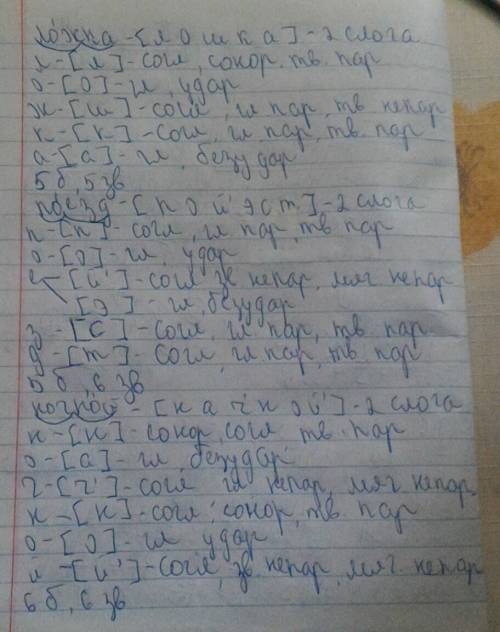 ложка-[л о ш к а]-2 слога
л-[л]-согл, сонор. тв. пар
о-[о]-гл, удар
ж-[ш]-согл, гл пар, тв непар
к-[к]-согл, гл пар, тв пар
а-[а]-гл, безудар
5 б, 5 зв
поезд-[п о й' э с т]-2 слога
п-[п]-согл, гл пар, тв пар
о-[о]-гл, удар
е-[й']-согл, зв непар, мяг непар
[э]-гл, безудар
з-[с]-согл, гл пар, тв пар
д-[т]-согл, гл пар, тв пар
5 б, 6 зв
ночной-[н а ч' н о й']-2 слога
н-[н]-сонор, согл, тв. пар
о-[а]-гл, безудар
ч-[ч']-согл гл непар, мяг непар
н-[н]-согл. сонор, тв. пар
о-[о]-гл удар
й-[й']-согл, зв. непар, мяг. непар
6 б, 6 зв